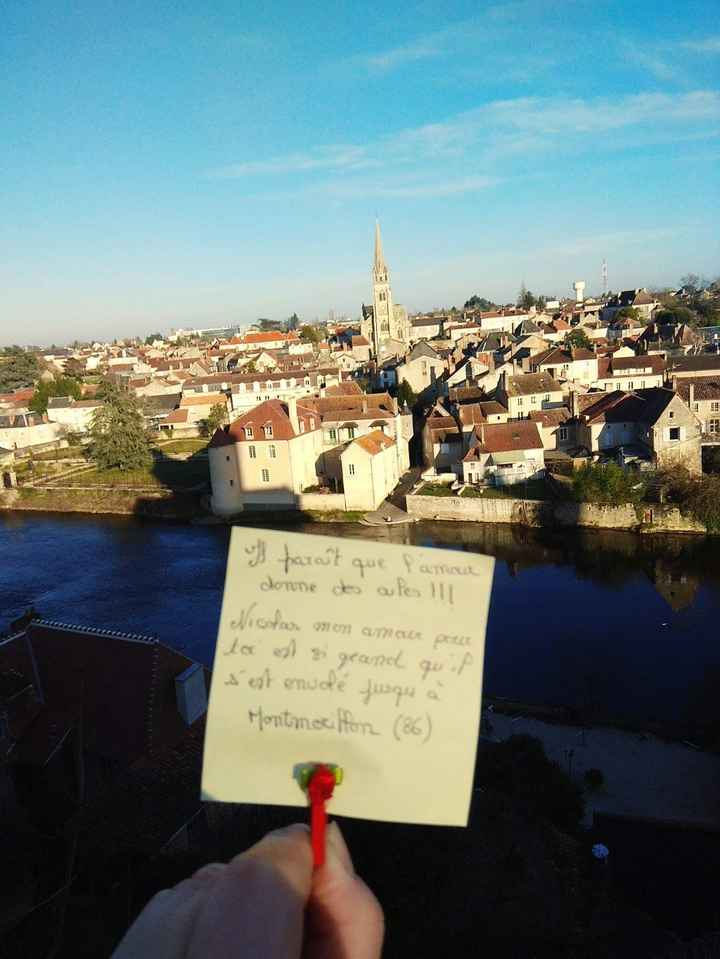 Il paraît que l'amour
donne des ailes !!!
Nicolas mon amour pour
toi est si grand qu'il
s'est envolé jusqu'à
Montmorillon (86)